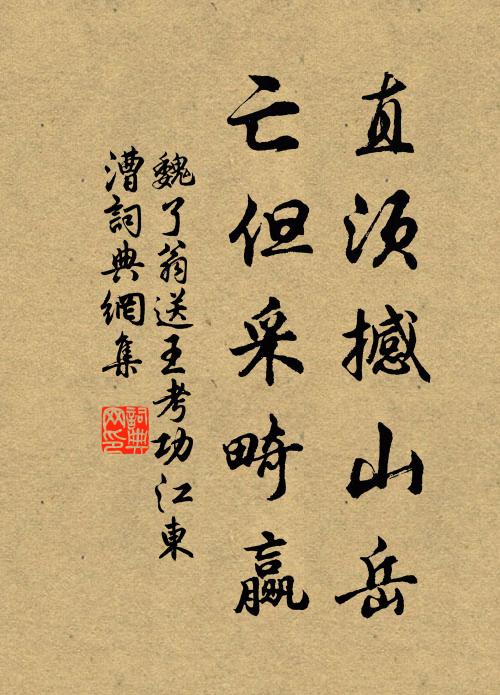 直須撼山岳
亡但采畸羸
魏了翁送王考功江東
漕詞典網集
詞典网印